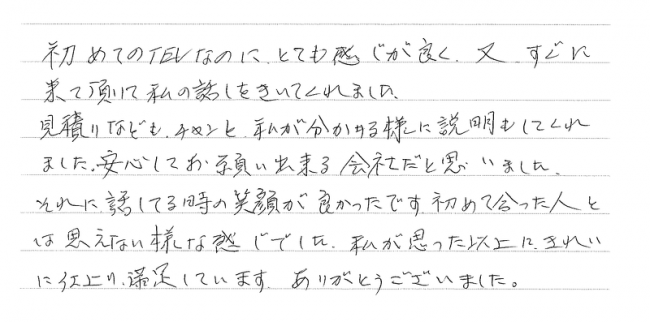 初めてのTELなのに、とても感じが良く、又、すぐに
来て頂いて私の話しをきいてくれました。
見積りなども、チャンと、私が分かる様に説明もしてくれ
ました。安心してお願い出来る会社だと思いました。
それに、話してる時の笑顔が良かったです。初めて合った人と
は思えない様な感じでした。私が思った以上に、きれい
に仕上り、満足しています。ありがとうございました。